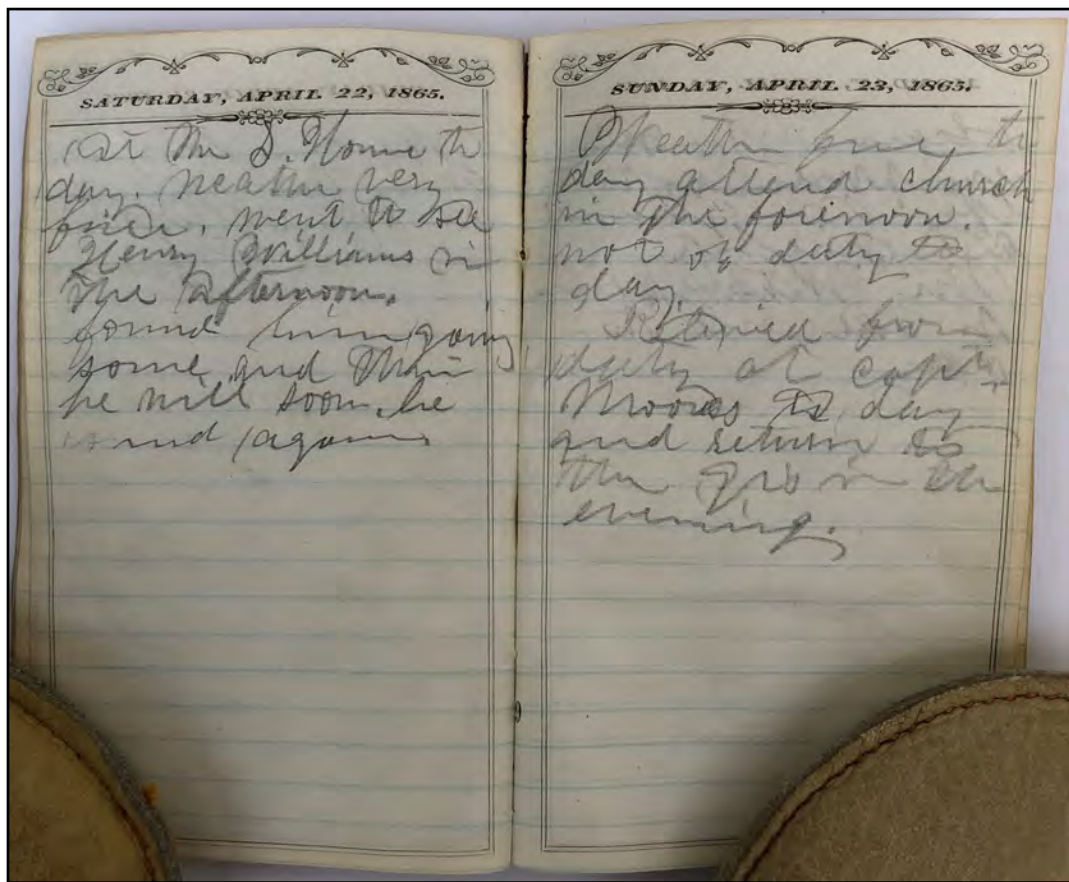 SATURDAY, APRIL 22, 1865.
At the S. Home to
day. Weather very
fine. went to see
Henry Williams in
the afternoon.
found him
some and
he will soon be
again
SUNDAY, APRIL 23, 1865.
Weather fine to
day attend church
in the forenoon.
not of duty to
day.
from
duty at Capt
Moores to day
and return to
the in the
evening.